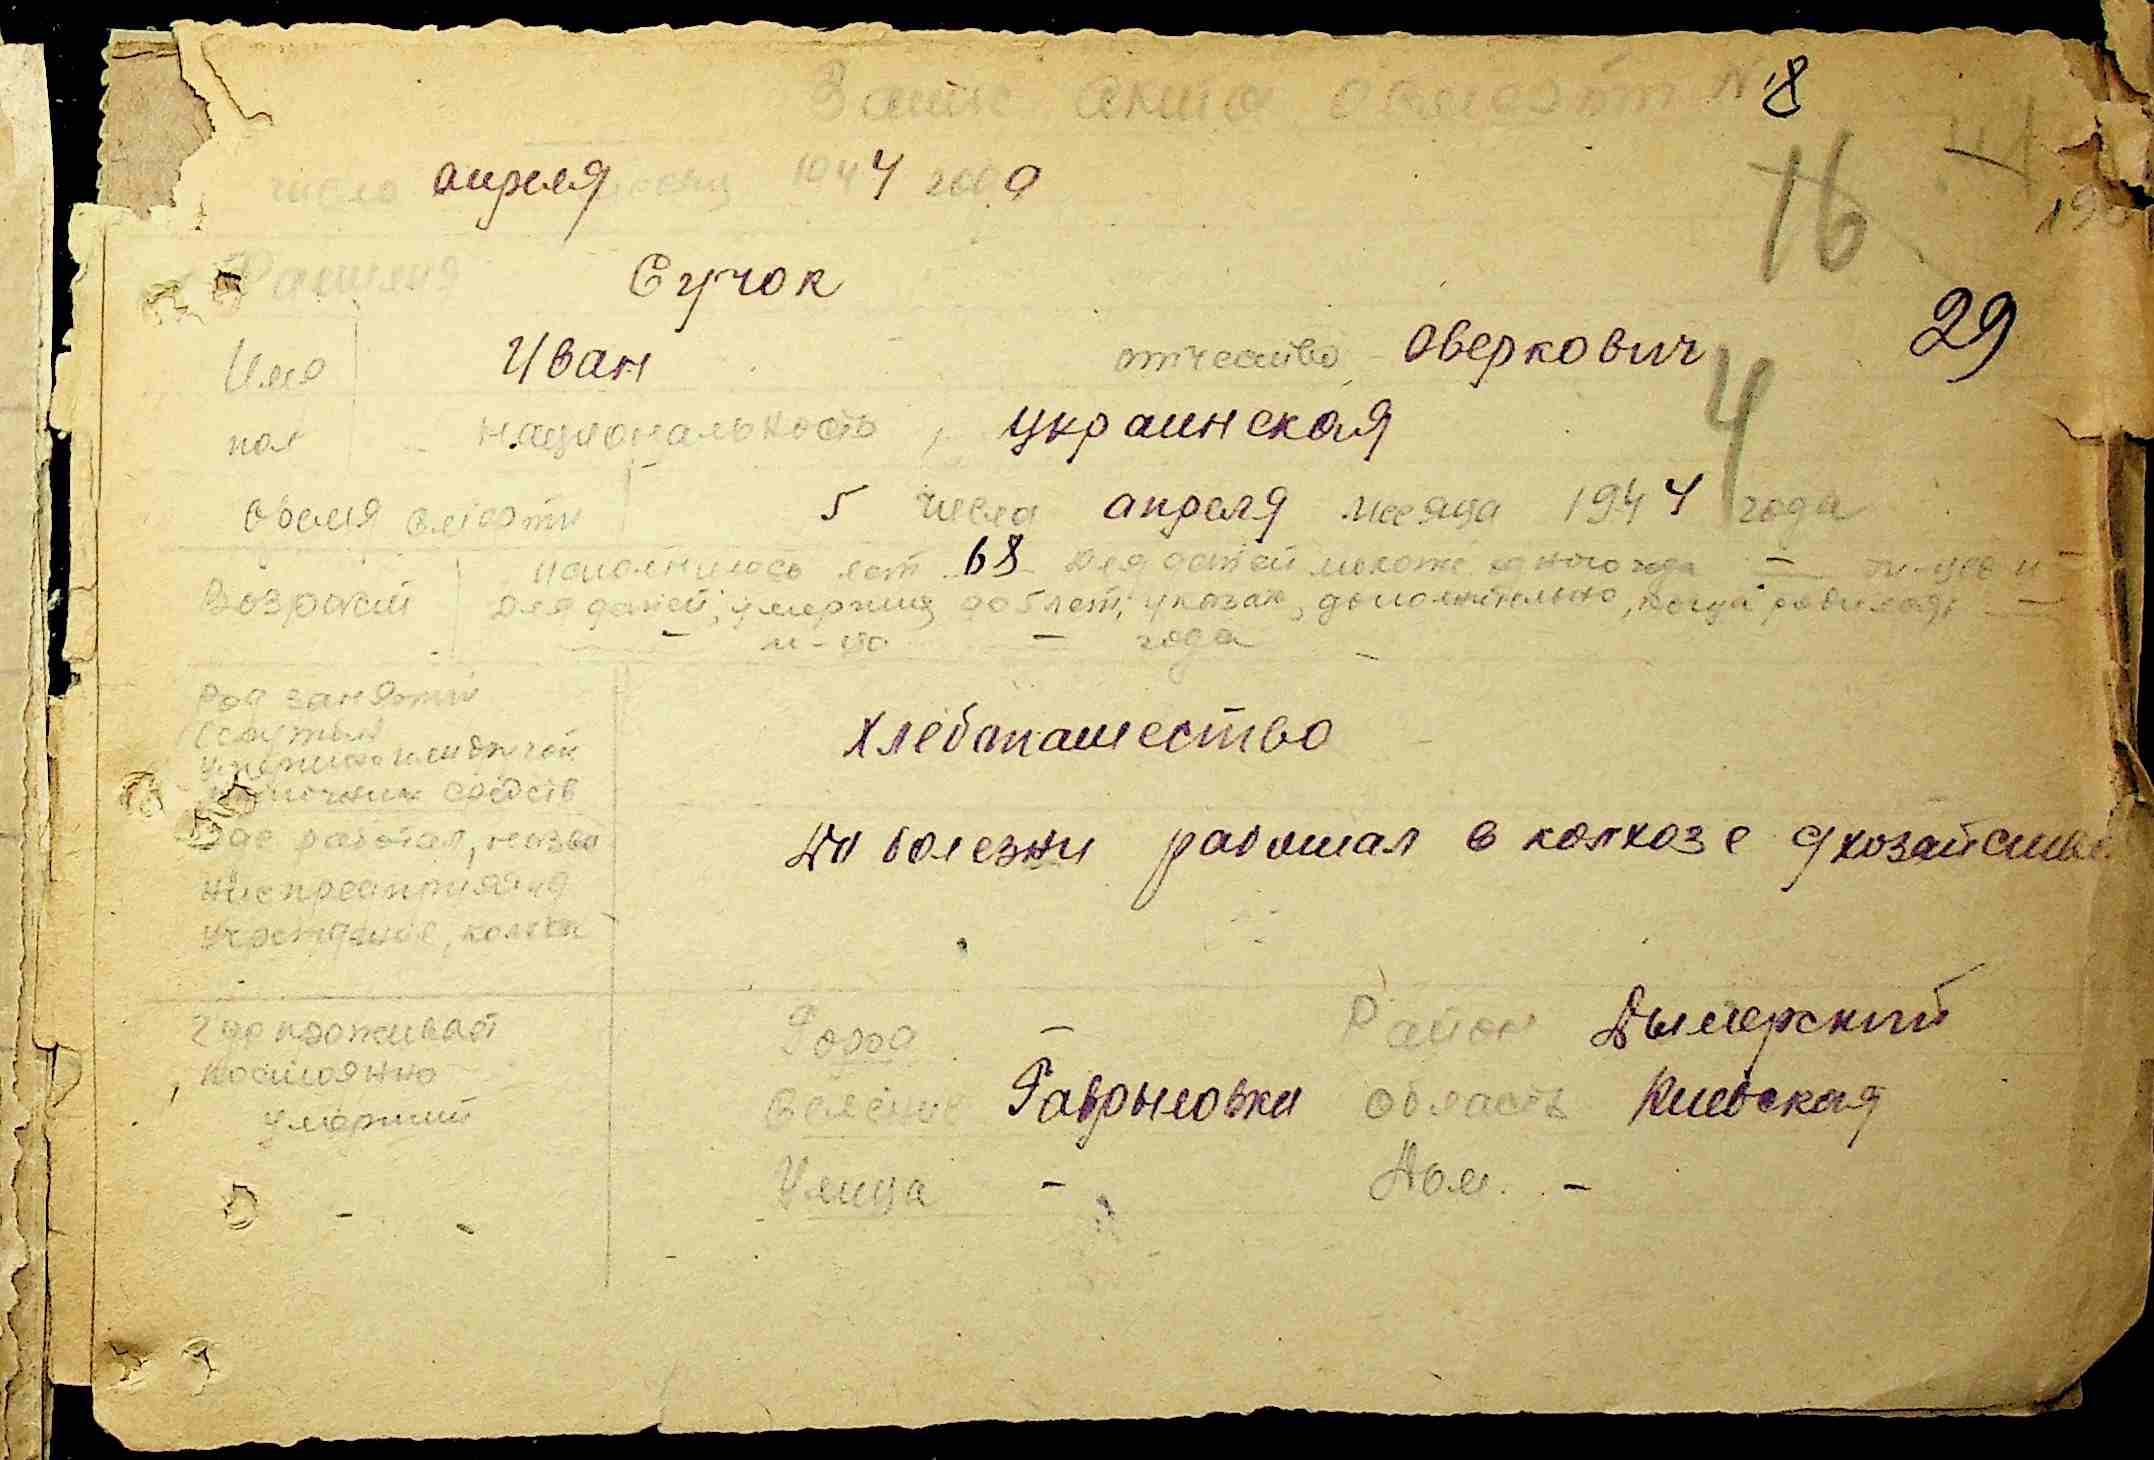 Запис акта о смерти № 8
16
число апреля месяц 1944 года
190
Фамилия Сучок
29
Имя Иван отчество Оверкович
4
пол национальность украинская
время смерти 5 числа апреля месяца 1944 года
Возраст исполнилось лет 68 для детей моложе одного года — м-цев и
для детей, умерших до 5 лет, указан, дополнительно, когда родился —
— м-ца — года
Род занятий хлебопашество
средств
Где работал, назва До болезни работал в колхозе
ние предприятия
учреждение, колхоз
Где проживает Город — Район Дымерский
постоянно селение Гаврыловка область Киевская
умерший
Улица — Дом. —